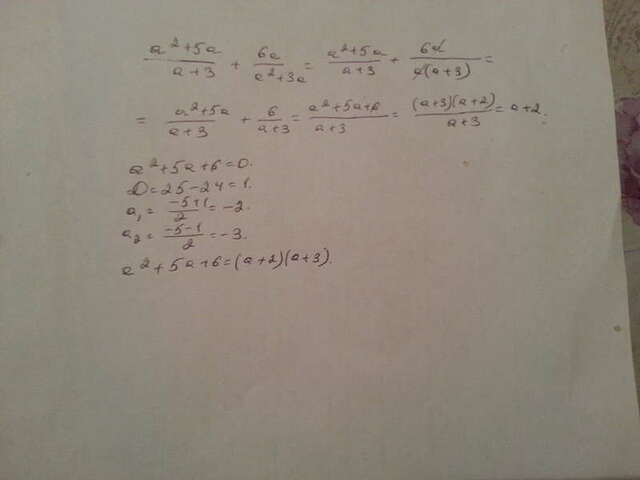 (a²+5a)/(a+3) + 6a/(a²+3a) = (a²+5a)/(a+3) + 6a/(a(a+3)) =
= (a²+5a)/(a+3) + 6/(a+3) = (a²+5a+6)/(a+3) = ((a+3)(a+2))/(a+3) = a+2.
a²+5a+6=0.
D=25-24=1.
a₁ = (-5+1)/2 = -2.
a₂ = (-5-1)/2 = -3.
a²+5a+6=(a+2)(a+3).